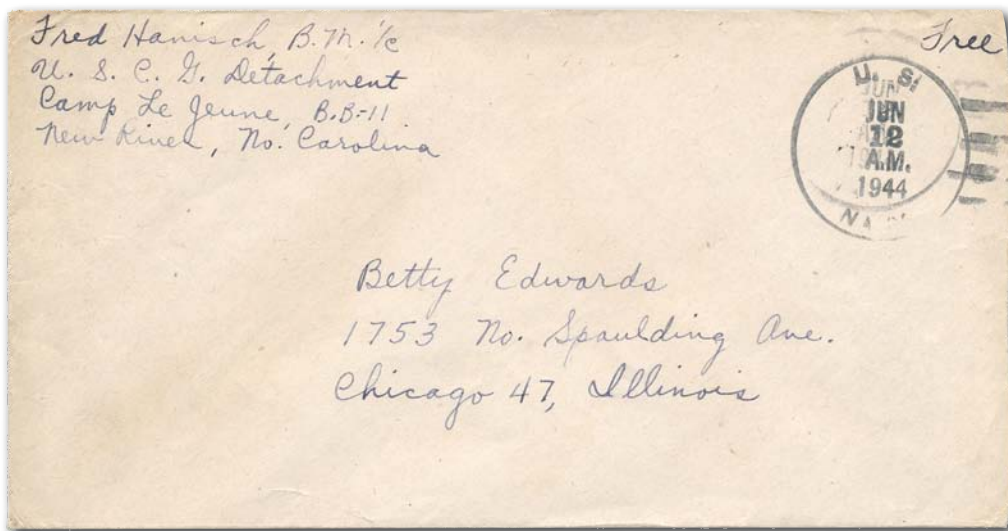 Fred Hanisch, B.M. 1/c
U. S. C. G. Detachment
Camp Le Jeune, B.B.-11
New River, No. Carolina
Free
U. S.
JUN
JUN
12
A.M.
1944
Betty Edwards
1753 No. Spaulding Ave.
Chicago 47, Illinois